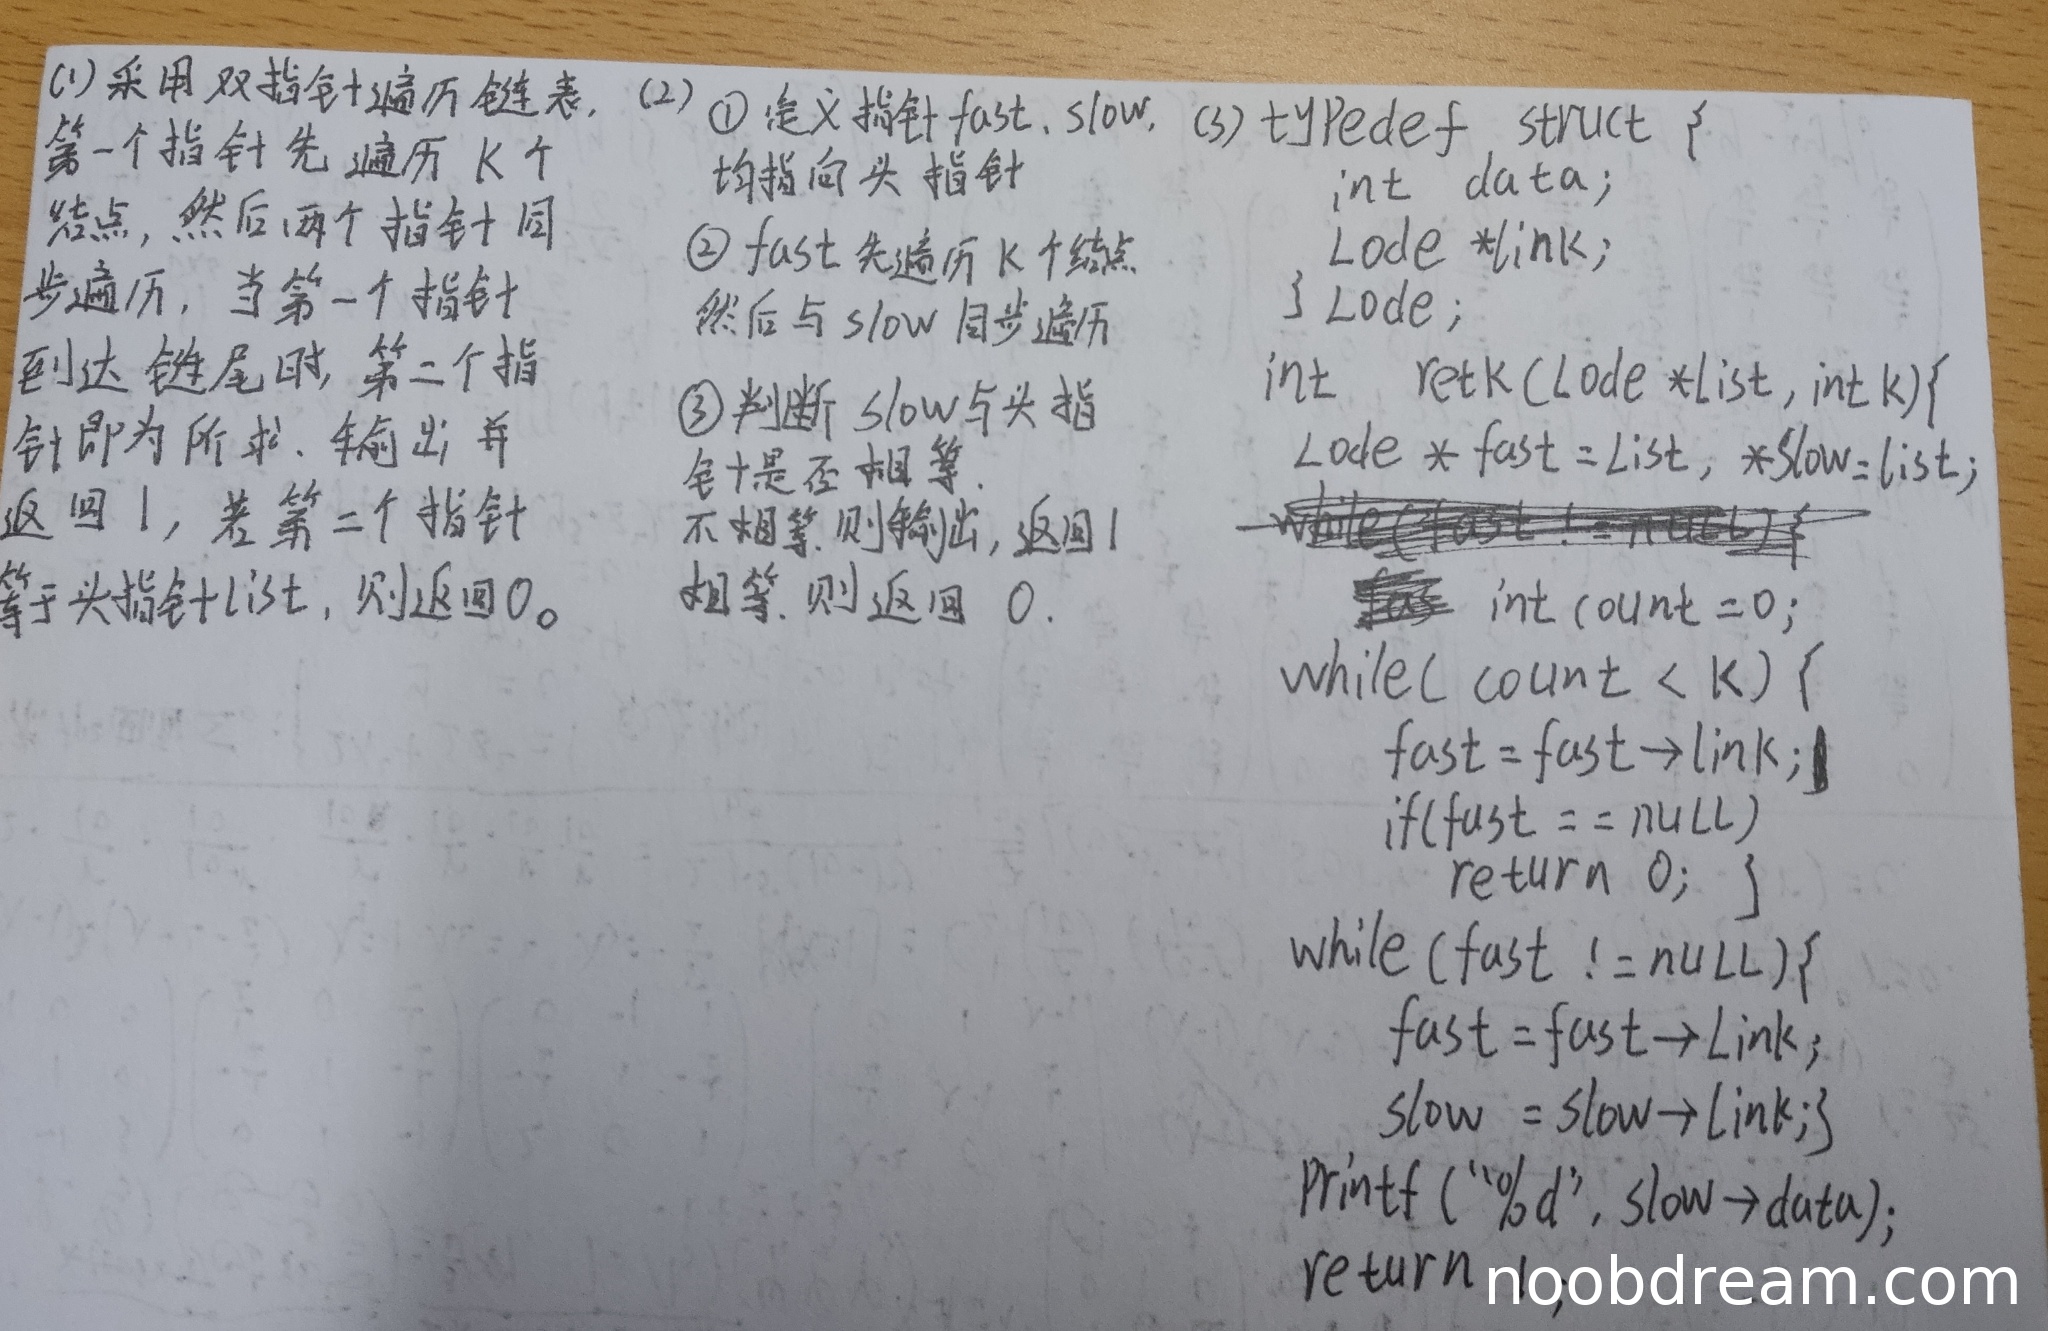 (1) 采用双指针遍历链表.
第一个指针先遍历 K个
结点, 然后两个指针同
步遍历. 当第一个指针
到达链尾时, 第二个指
针即为所求. 输出并
返回1, 若第二个指针
等于头指针list, 则返回0。
(2) ① 定义指针fast、slow.
均指向头指针
② fast先遍历K个结点
然后与slow同步遍历
③ 判断slow与头指
针是否相等.
不相等.则输出, 返回1
相等.则返回 0.
(3) typedef struct {
int data;
Lode *link;
} Lode;
int retk(Lode *List, int k){
Lode * fast = List, *slow=list;
while(fast != null){
fas int count =0;
while( count < K) {
fast = fast→link;
if(fast == null)
return 0; }
while (fast != null){
fast = fast→Link;
slow = slow→Link;}
printf("%d", slow→data);
return 1;
noobdream.com